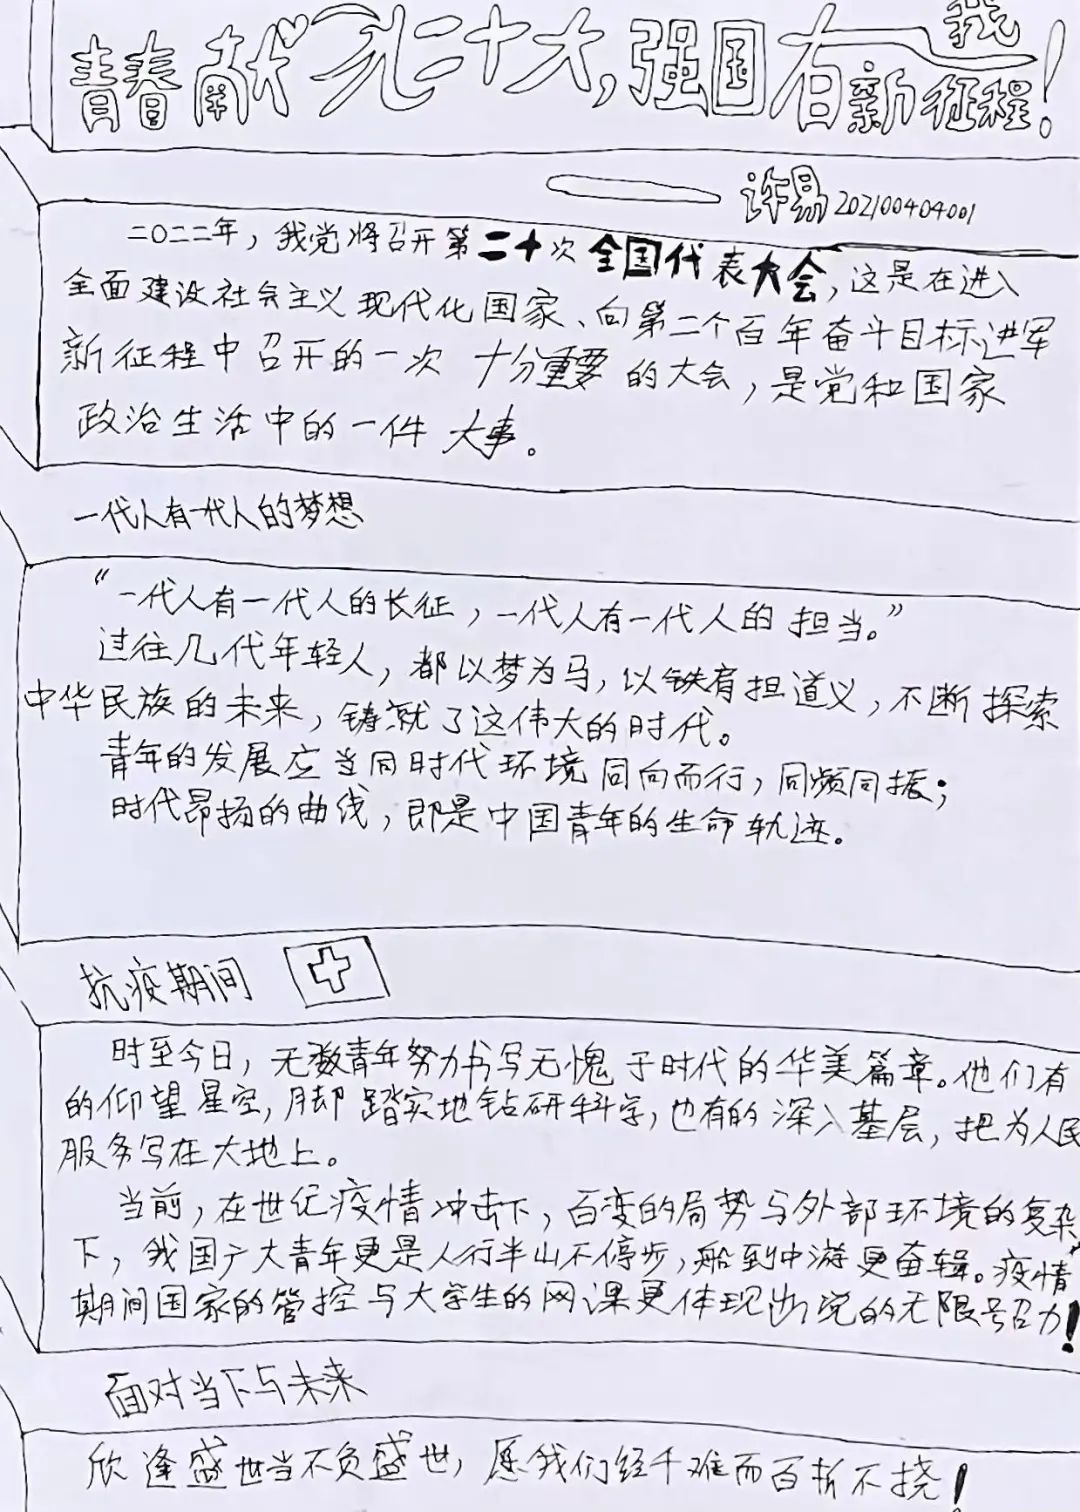 青春献礼二十大,强国有我新征程!
许易 20210040400 1
二〇二二年,我党将召开第二十次全国代表大会,这是在进入
全面建设社会主义现代化国家、向第二个百年奋斗目标进军
新征程中召开的一次十分重要的大会,是党和国家
政治生活中的一件大事。
一代人有一代人的梦想
“一代人有一代人的长征,一代人有一代人的担当。”
过往几代年轻人,都以梦为马,以铁肩担道义,不断探索
中华民族的未来,铸就了这伟大的时代。
青年的发展应当同时代环境同向而行,同频同振;
时代昂扬的曲线,即是中国青年的生命轨迹。
抗疫期间
时至今日,无数青年努力书写无愧于时代的华美篇章。他们有
的仰望星空,脚踏实地钻研科学,也有的深入基层,把为人民
服务写在大地上。
当前,在世纪疫情冲击下,百变的局势与外部环境的复杂
下,我国广大青年更是人行半山不停步,船到中游更奋楫。疫情
期间国家的管控与大学生的网课更体现出党的无限号召力!
面对当下与未来
欣逢盛世当不负盛世,愿我们经千难而百折不挠!